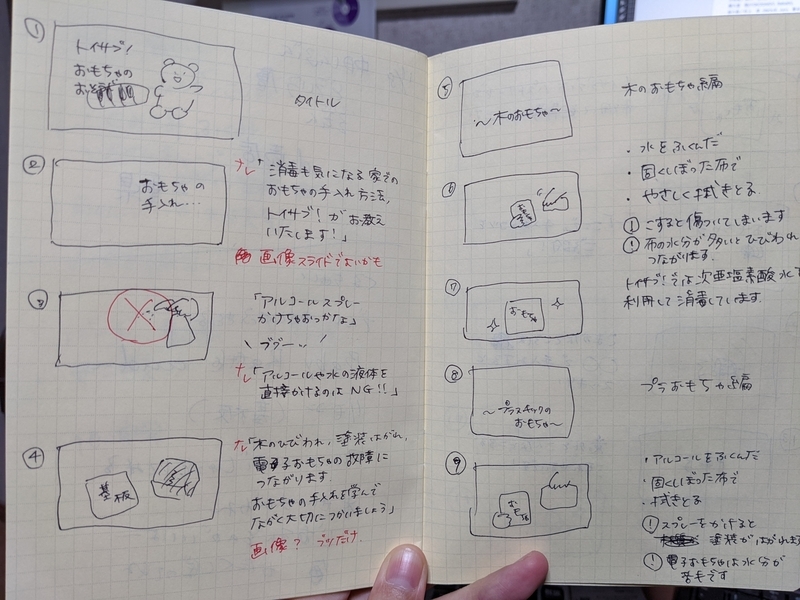 ①
トイサブ!
おもちゃの
お
タイトル
②
おもちゃの
手入れ…
ナレ「消毒も気になる家での
おもちゃの手入れ方法、
トイサブ!がお教え
いたします!」
画像スライドでもいいかも
③
「アルコールスプレー
かけちゃおっかなぁ」
\ブブーッ/
ナレ「アルコールや水の液体を
直接かけるのはNG!!」
④
基板
ナレ「木のひびわれ、塗装はがれ、
電子おもちゃの故障に
つながります。
おもちゃの手入れを学んで
ながく大切につかいましょう」
画像? ブツだけ
⑤
~木のおもちゃ~
木のおもちゃ編
⑥
おもちゃ
・水をふくんだ
・固くしぼった布で
・やさしく拭きとる
! こすると傷ついてしまいます
! 布の水分が多いとひびわれ
つながります。
⑦
おもちゃ
トイサブ!では次亜塩素酸水
利用して消毒しています。
⑧
~プラスチックの
おもちゃ~
プラおもちゃ編
⑨
おもちゃ
・アルコールをふくんだ
・固くしぼった布で
・拭きとる
! スプレーをかけると
塗装がはがれ
! 電子おもちゃは水分が
苦手です